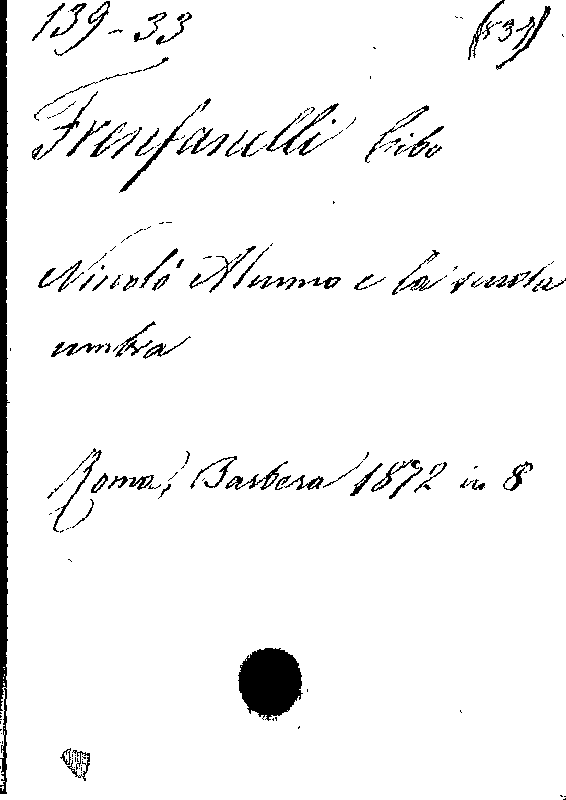 139-33 (831)
Frenfanelli Cibo
Niccolò Alunno e la scuola
umbra
Roma, Barbera 1872 in 8